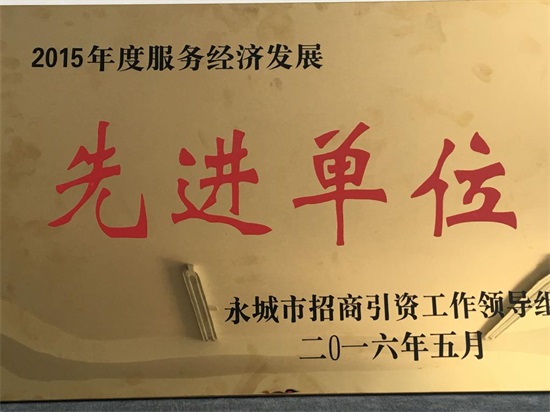 2015年度服务经济发展
先进单位
永城市招商引资工作领导组
二0一六年五月